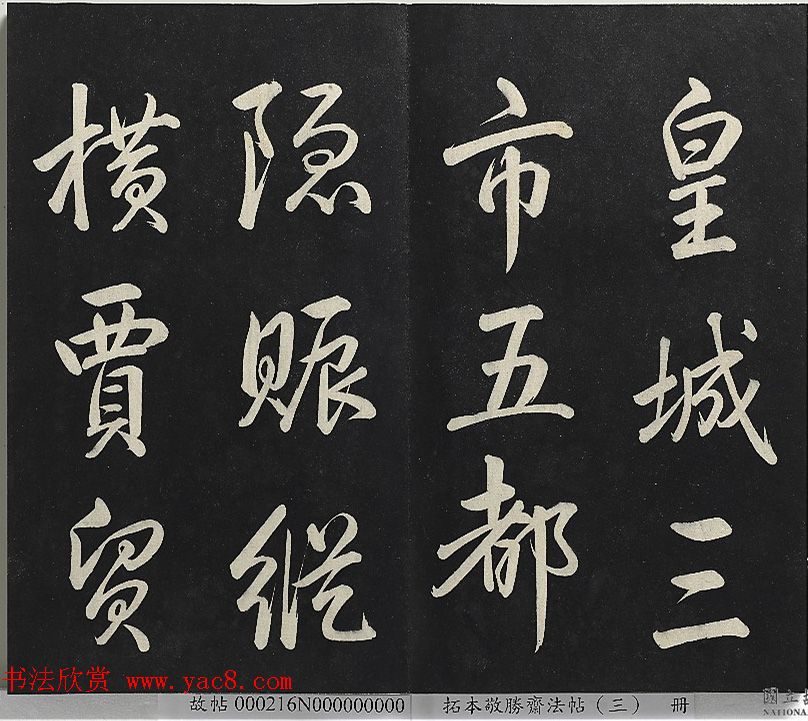 皇城三
市五都
隐赈縱
横賈貿
书法欣赏 www.yac8.com
故帖 000216N000000000
拓本敬勝齋法帖（三） 册
國立
NATIONA